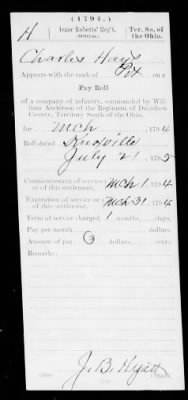 (1794.)
H Isaac Roberts' Reg't. Ter. So. of the Ohio.
Charles Hays
Appears with the rank of Pvt on a
Pay Roll
of a company of infantry, commanded by William Anderson of the Regiment of Davidson County, Territory South of the Ohio,
for Mch 1794
Roll dated Knoxville
July 21 1795
Commencement of service or of this settlement, Mch 1 1794
Expiration of service or of this settlement, Mch 31 1794
Term of service charged, 1 months, days.
Pay per month, dollars.
Amount of pay, 6 dollars, cents.
Remarks:
J. B. Hyatt